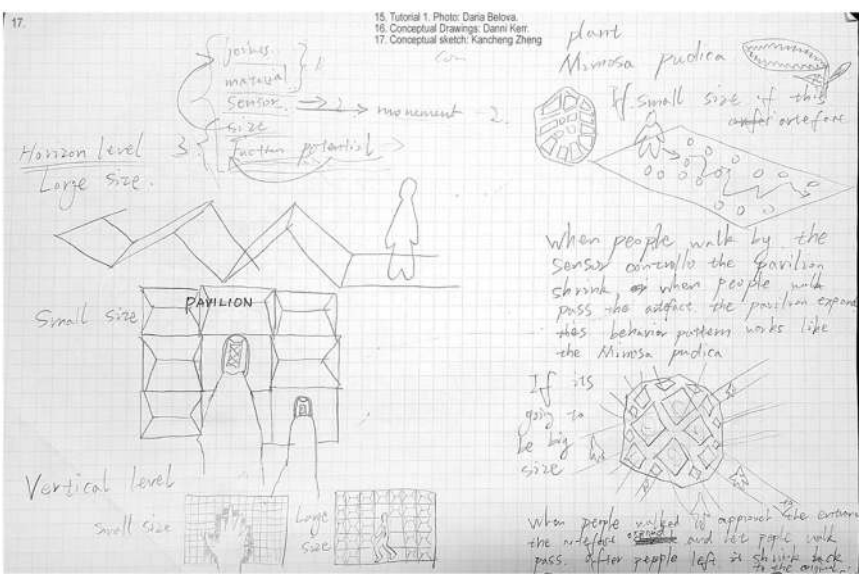 17.
15. Tutorial 1. Photo: Daria Belova.
16. Conceptual Drawings: Danni Kerr.
17. Conceptual sketch: Kancheng Zheng
material
sensor → 2 → movement - 2.
size
3.
potential
Horizon level
Large size.
Small size
PAVILION
Vertical level
Small size
Large
size
plant
Mimosa pudica
If small size of this
When people walk by the
sensor controllo the pavilion
shrink when people walk
pass the arteface. the pavilion expand
thes behavior pattern works like
the Mimosa pudica
If its
going to
be big
size
When people walked to the entran
the and let pople walk
pass. after people left is shrink back
to the